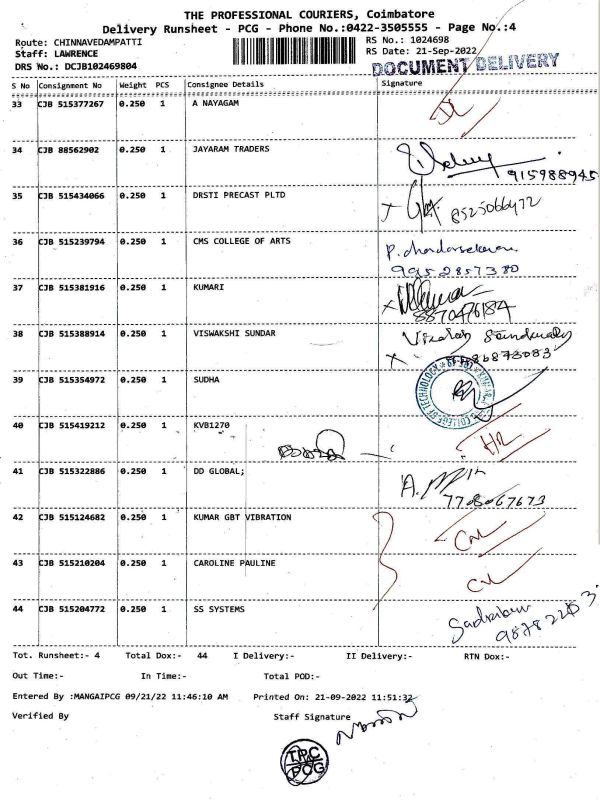 THE PROFESSIONAL COURIERS, Coimbatore
Delivery Runsheet - PCG - Phone No.:0422-3505555 - Page No.:4
Route: CHINNAVEDAMPATTI RS No.: 1024698
Staff: LAWRENCE RS Date: 21-Sep-2022
DRS No.: DCJB102469804 DOCUMENT DELIVERY
S No Consignment No Weight PCS Consignee Details Signature
33 CJB 515377267 0.250 1 A NAYAGAM
34 CJB 88562902 0.250 1 JAYARAM TRADERS
915988945
35 CJB 515434066 0.250 1 DRSTI PRECAST PLTD
8525066472
36 CJB 515239794 0.250 1 CMS COLLEGE OF ARTS P. chandrasekaran
9952857380
37 CJB 515381916 0.250 1 KUMARI
8870476184
38 CJB 515388914 0.250 1 VISWAKSHI SUNDAR
39 CJB 515354972 0.250 1 SUDHA COLLEGE OF TECHNOLOGY
40 CJB 515419212 0.250 1 KVB1270
41 CJB 515322886 0.250 1 DD GLOBAL;
7708067673
42 CJB 515124682 0.250 1 KUMAR GBT VIBRATION
43 CJB 515210204 0.250 1 CAROLINE PAULINE
44 CJB 515204772 0.250 1 SS SYSTEMS
Tot. Runsheet:- 4 Total Dox:- 44 I Delivery:- II Delivery:- RTN Dox:-
Out Time:- In Time:- Total POD:-
Entered By :MANGAIPCG 09/21/22 11:46:10 AM Printed On: 21-09-2022 11:51:32
Verified By Staff Signature
TPC
PCG